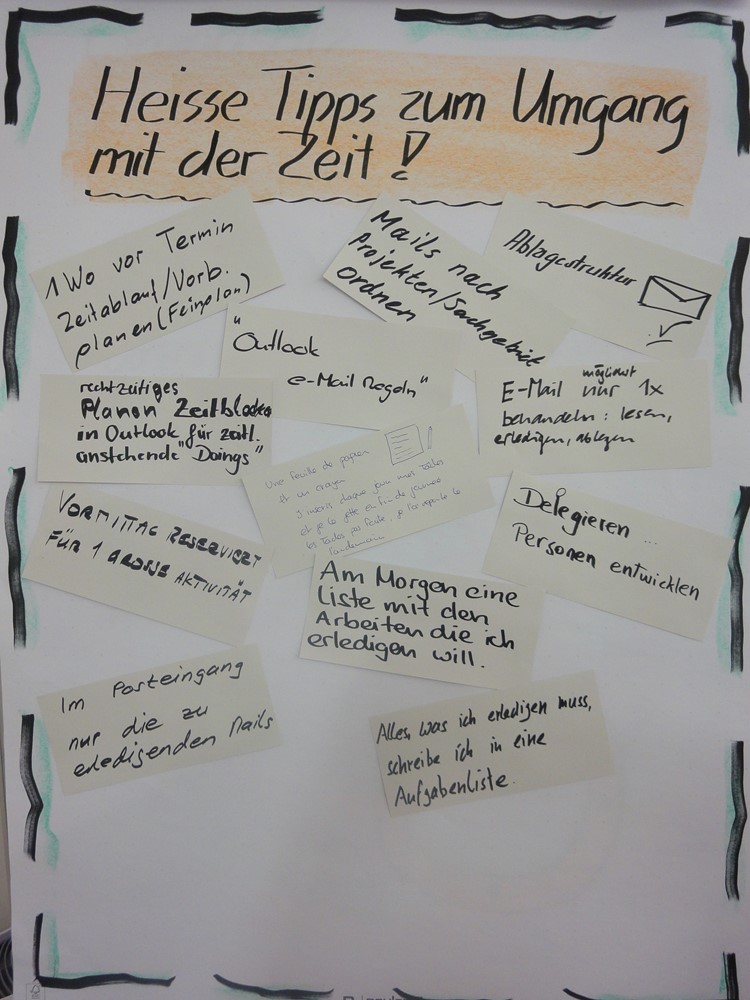 Heisse Tipps zum Umgang
mit der Zeit!
1 Wo vor Termin
Zeitablauf/Vorb.
planen (Feinplan)
Mails nach
Projekten/Sachgebiet
ordnen
Ablagestruktur
"Outlook
e-Mail Regeln"
rechtzeitiges
Planen Zeitblocks
in Outlook für zeitl.
anstehende "Doings"
möglichst
E-Mail nur 1x
behandeln: lesen,
erledigen, ablegen
Une feuille de papier
et un crayon
J'inscris chaque jour mes tâches
et je la jette en fin de journée
les tâches pas faite, je reporte le
lendemain
VORMITTAG RESERVIERT
FÜR 1 GROSSE AKTIVITÄT
Delegieren ...
Personen entwicklen
Am Morgen eine
Liste mit den
Arbeiten die ich
erledigen will.
Im Posteingang
nur die zu
erledigenden Mails
Alles, was ich erledigen muss,
schreibe ich in eine
Aufgabenliste.